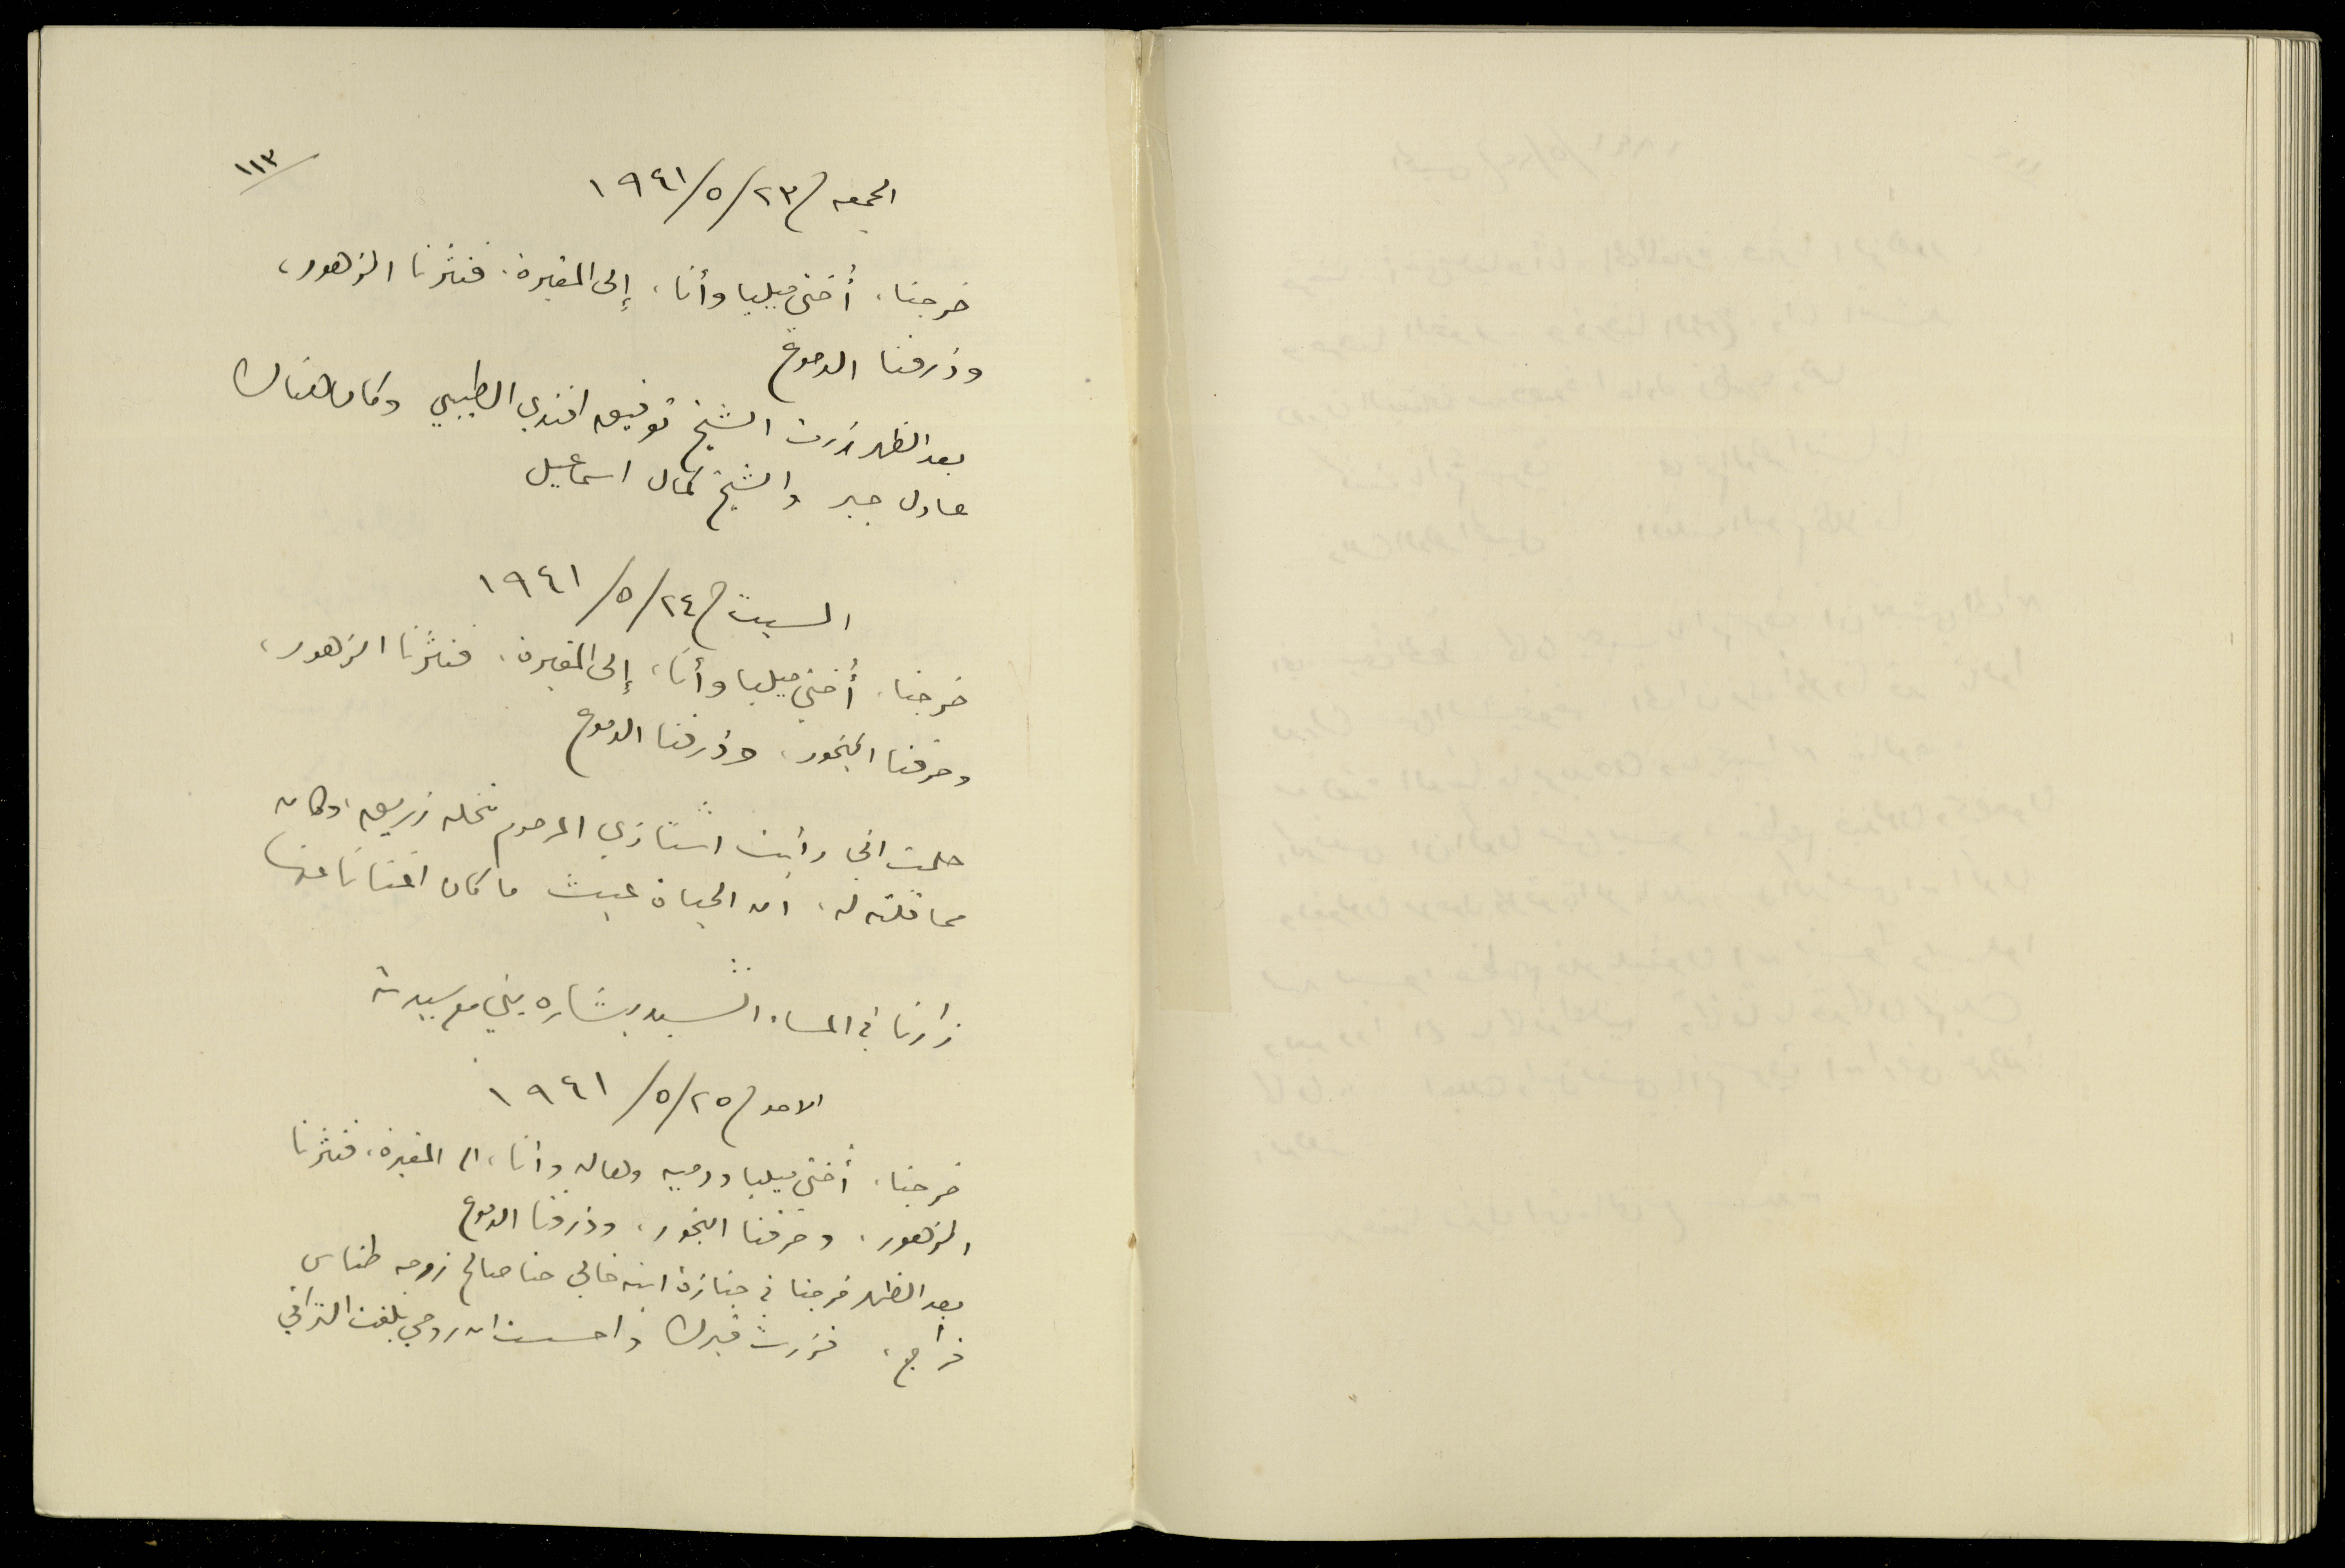 ١١٣
الجمعه في ٢٣/٥/١٩٤١
خرجنا، أختي ميليا وأنا، إلى المقبرة. فنثرنا الزهور،
وذرفنا الدموع
بعد الظهر زرت الشيخ توفيق افندي الطيبي وكان هناك
عادل جبر والشيخ كمال اسماعيل
السبت في ٢٤/٥/١٩٤١
خرجنا، أختي ميليا وأنا، إلى المقبرة. فنثرنا الزهور،
وحرقنا البخور، وذرفنا الدموع
حلمت اني رأيت استاذي المرحوم نخله زريق، وكان
مما قلته له، ان الحياة عبث ما كان اغنانا عنها
زارنا في المساء السيد بشاره يني مع سيدته
الاحد في ٢٥/٥/١٩٤١
خرجنا، أختي ميليا ودميه وهاله وأنا، الى المقبرة، فنثرنا
الزهور، وحرقنا البخور، وذرفنا الدموع
بعد الظهر خرجنا في جنازة ابنه خالي حنا صالح زوجه طناس
فراج، فزرت قبرك واحسست ان روحي بلغت التراقي